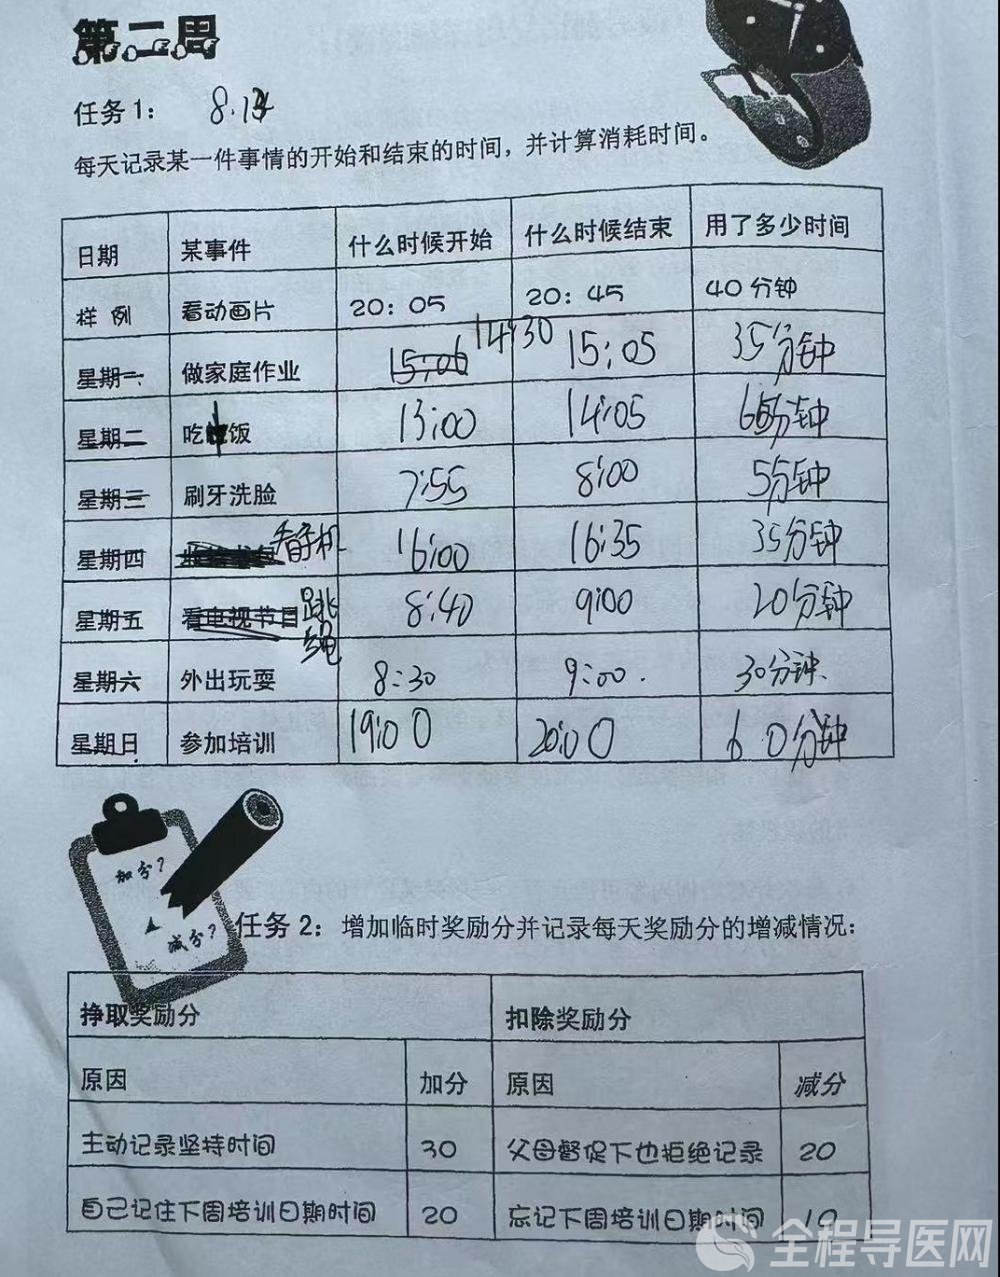 第二周
任务1： 8.14
每天记录某一件事情的开始和结束的时间，并计算消耗时间。
日期 某事件 什么时候开始 什么时候结束 用了多少时间
样 例 看动画片 20：05 20：45 40分钟
星期一 做家庭作业 15:06 14:30 15:05 35分钟
星期二 吃饭 13:00 14:05 65分钟
星期三 刷牙洗脸 7:55 8:00 5分钟
星期四 看手机 16:00 16:35 35分钟
星期五 看电视节目 跳绳 8:40 9:00 20分钟
星期六 外出玩耍 8:30 9:00. 30分钟.
星期日 参加培训 19:00 20:00 60分钟
加分？
减分？
任务 2：增加临时奖励分并记录每天奖励分的增减情况：
挣取奖励分 扣除奖励分
原因 加分 原因 减分
主动记录坚持时间 30 父母督促下也拒绝记录 20
自己记住下周培训日期时间 20 忘记下周培训日期时间 10
全程导医网